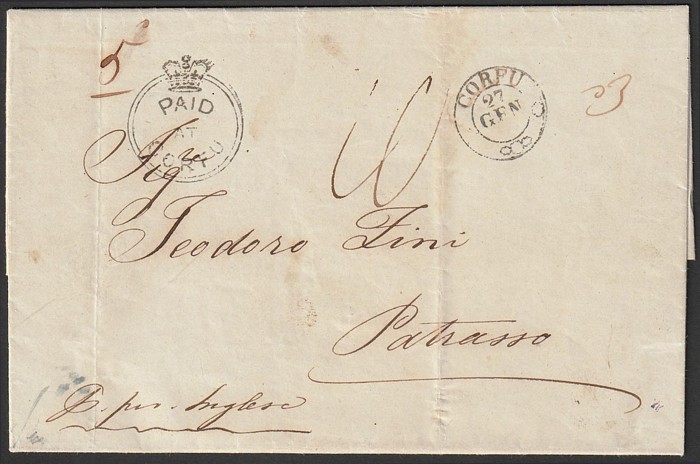 5
PAID
AT
CORFU
10
CORFU
27
GEN
Sigre
Teodoro Zini
Patrasso
P. per Inglese